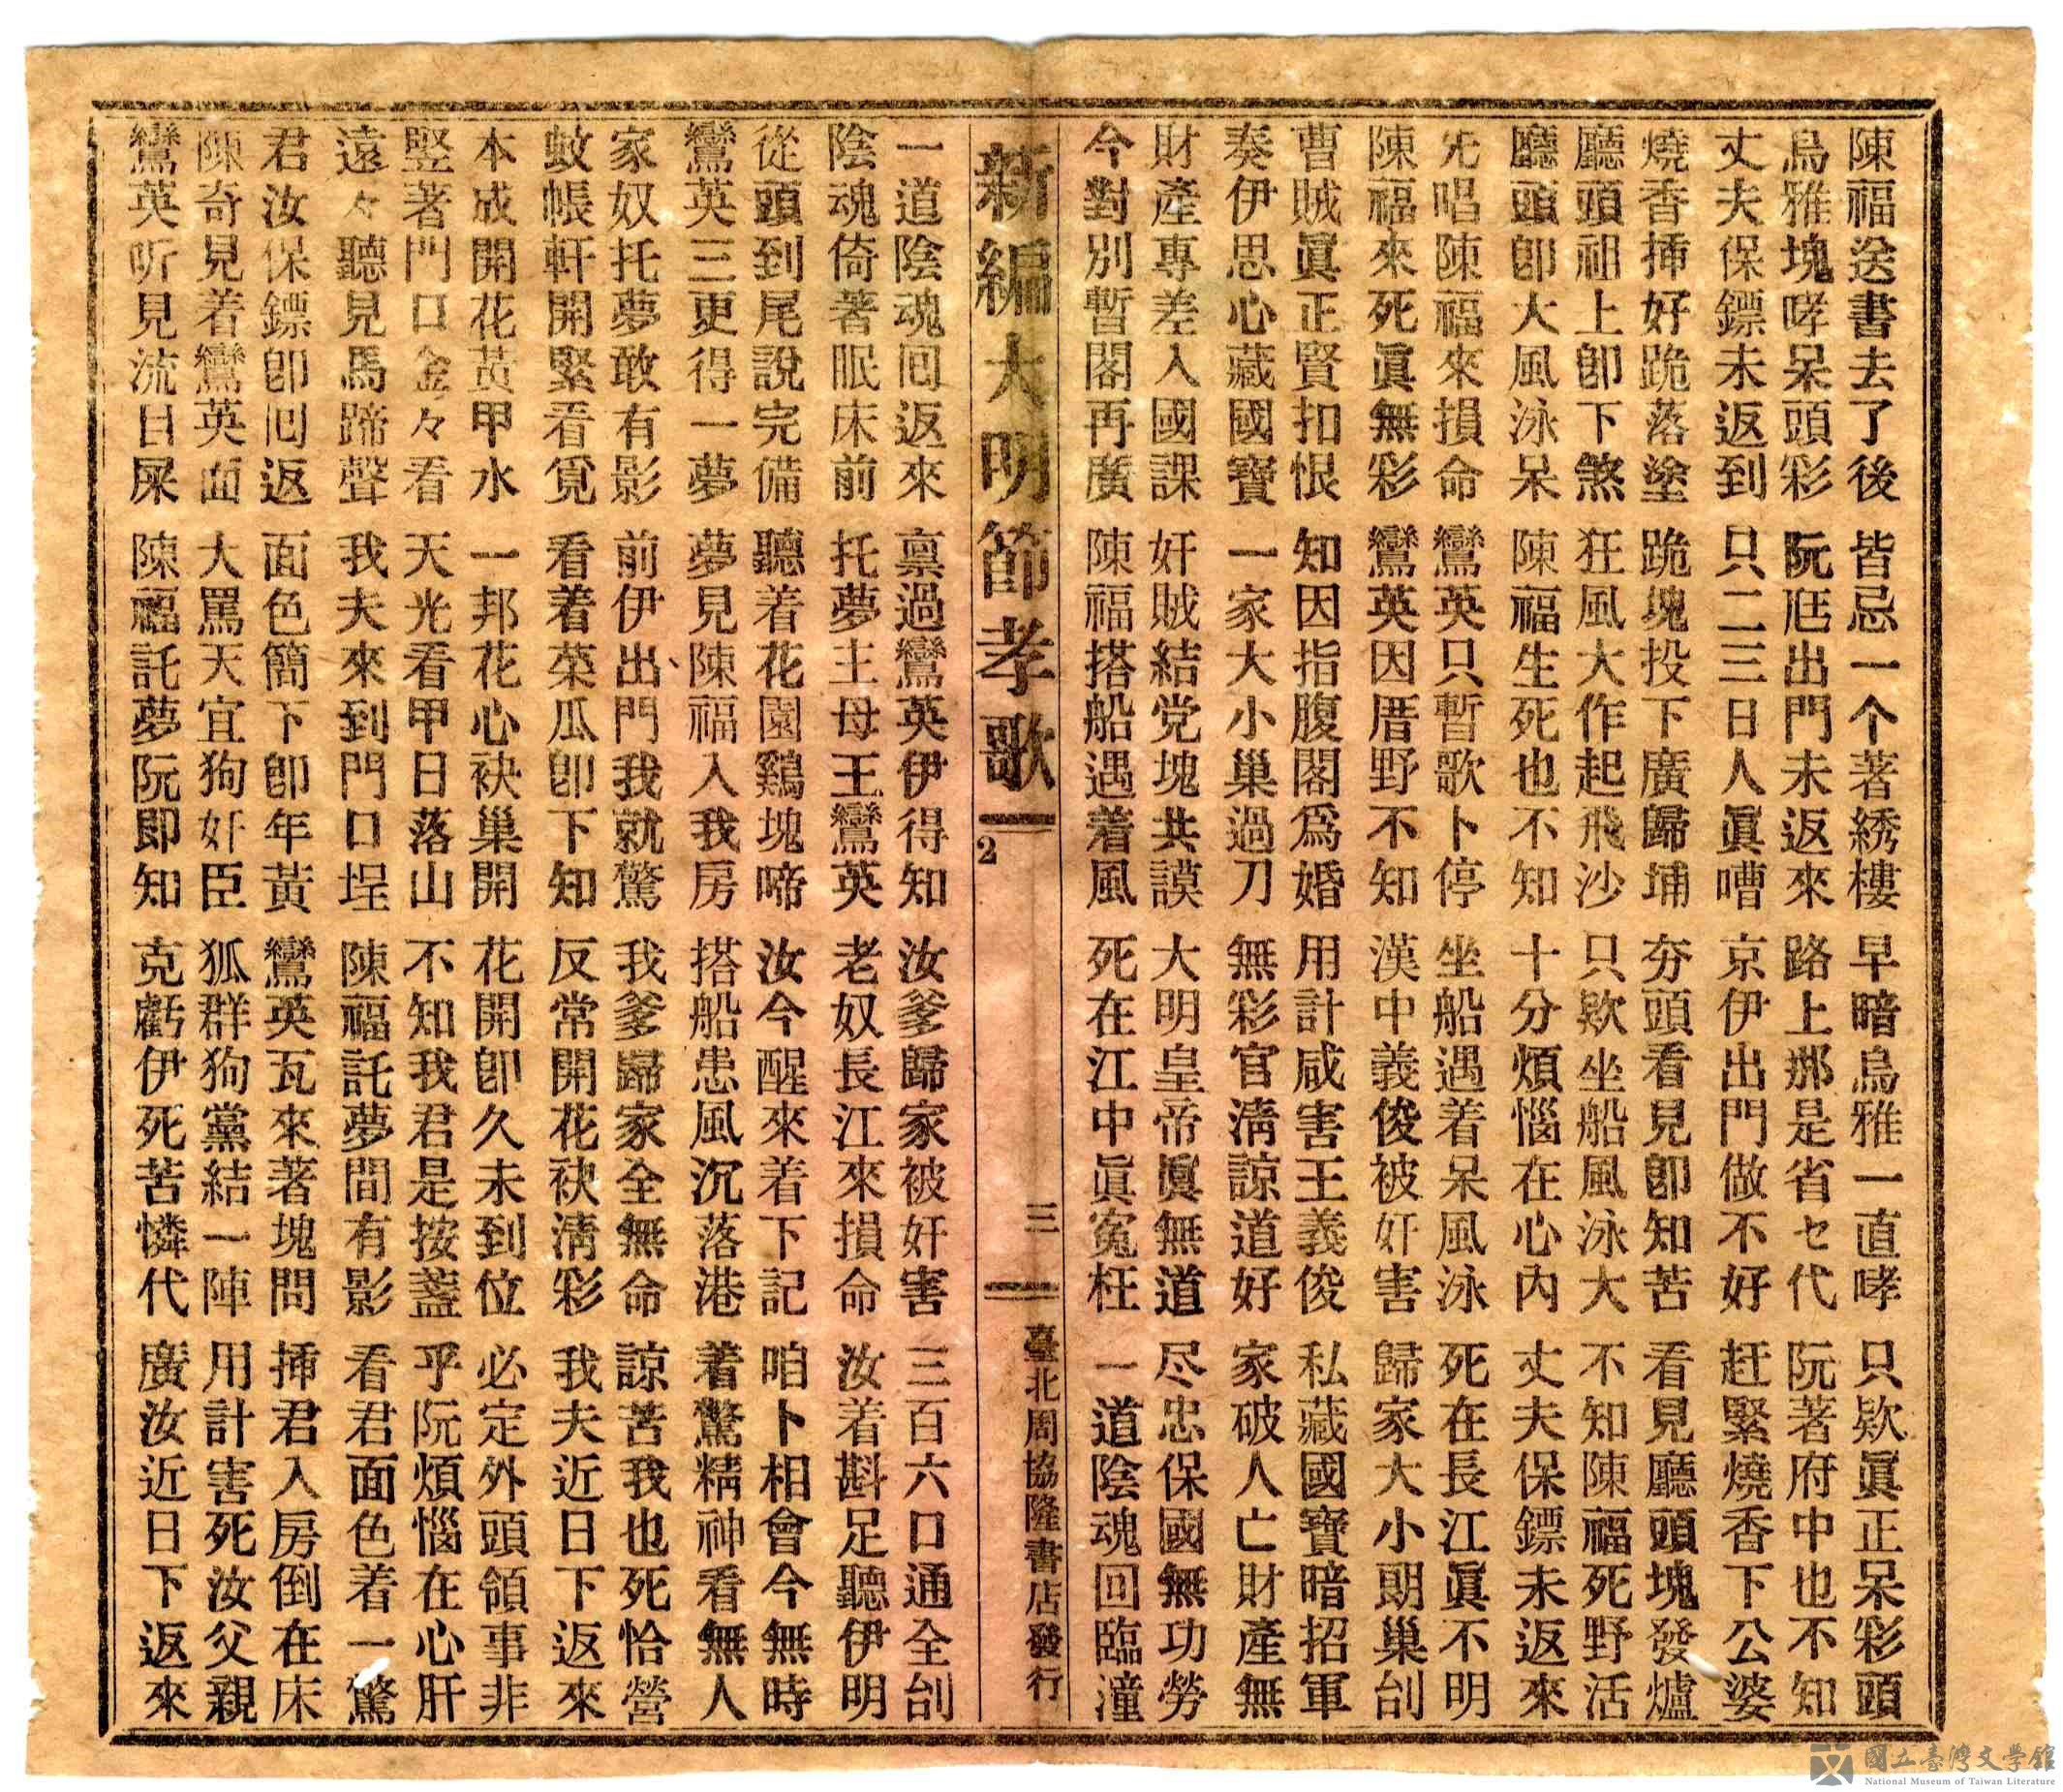 陳福送書去了後 皆忌一个著綉樓 早暗烏雅一直哮 只欵眞正呆彩頭
烏雅塊哮呆頭彩 阮尫出門未返來 路上那是省セ代 阮著府中也不知
丈夫保鏢未返到 只二三日人眞嘈 京伊出門做不好 赶緊燒香下公婆
燒香揷好跪落塗 跪塊投下廣歸埔 夯頭看見卽知苦 看見廳頭塊發爐
廳頭祖上卽下煞 狂風大作起飛沙 只欵坐船風泳大 不知陳福死野活
廳頭卽大風泳呆 陳福生死也不知 十分煩惱在心內 丈夫保鏢未返來
先唱陳福來損命 鸞英只暫歌卜停 坐船遇着呆風泳 死在長江眞不明
陳福來死眞無彩 鸞英因厝野不知 漢中義俊被奸害 歸家大小朗巢刣
曹賊眞正賢扣恨 知因指腹閣爲婚 用計咸害王義俊 私藏國寶暗招軍
奏伊思心藏國寶 一家大小巢過刀 無彩官淸諒道好 家破人亡財產無
財產專差入國課 奸賊結党塊共謨 大明皇帝眞無道 尽忠保國無功勞
今對別暫閣再廣 陳福搭船遇着風 死在江中眞寃枉 一道陰魂回臨潼
新編大明節孝歌 2 三 臺北周協隆書店發行
一道陰魂囘返來 禀過鸞英伊得知 汝爹歸家被奸害 三百六口通全刣
陰魂倚著眠床前 托夢主母王鸞英 老奴長江來損命 汝着斟足聽伊明
從頭到尾說完備 聽着花園鷄塊啼 汝今醒來着下記 咱卜相會今無時
鸞英三更得一夢 夢見陳福入我房 搭船患風沉落港 着驚精神看無人
家奴托夢敢有影 前伊出門我就驚 我爹歸家全無命 諒苦我也死恰營
蚊帳軒開緊看覓 看着菜瓜卽下知 反常開花袂淸彩 我夫近日下返來
本成開花黃甲水 一邦花心袂巢開 花開卽久未到位 必定外頭領事非
竪著門口金々看 天光看甲日落山 不知我君是按盞 乎阮煩惱在心肝
遠々聽見馬蹄聲 我夫來到門口埕 陳福託夢間有影 看君面色着一驚
君汝保鏢卽囘返 面色簡下卽年黃 鸞英瓦來著塊問 揷君入房倒在床
陳奇見着鸞英面 大罵天宜狗奸臣 狐群狗黨結一陣 用計害死汝父親
鸞英听見流目屎 陳福託夢阮即知 克虧伊死苦憐代 廣汝近日下返來
國立臺灣文學館
National Museum of Taiwan Literature